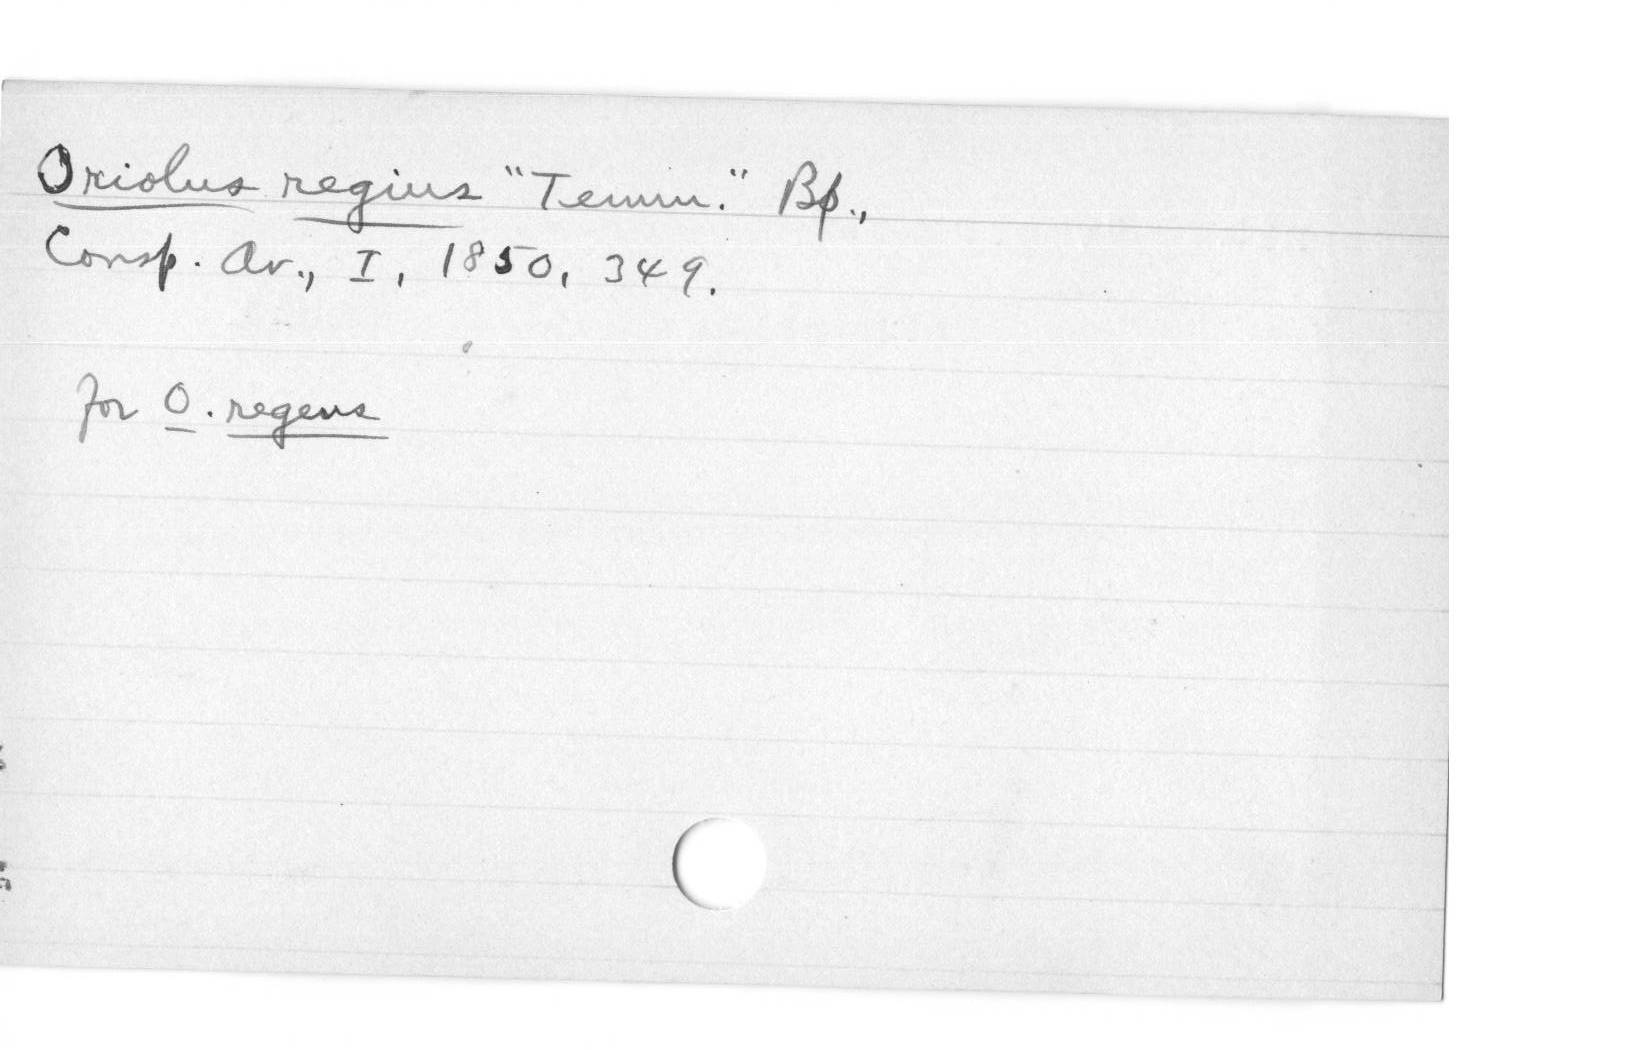 Oriolus regius "Temm." Bp.,
Consp. Av., I, 1850, 349.
for O. regens